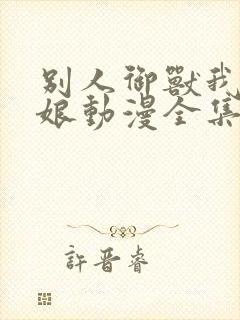 別人御獸我
娘動漫全集
許晋睿